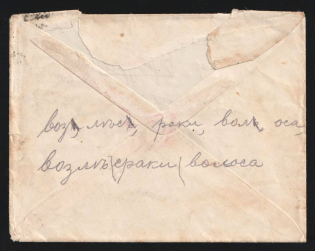 воз, мъс, раки, вол, оса,
возмъ(сраки(волоса